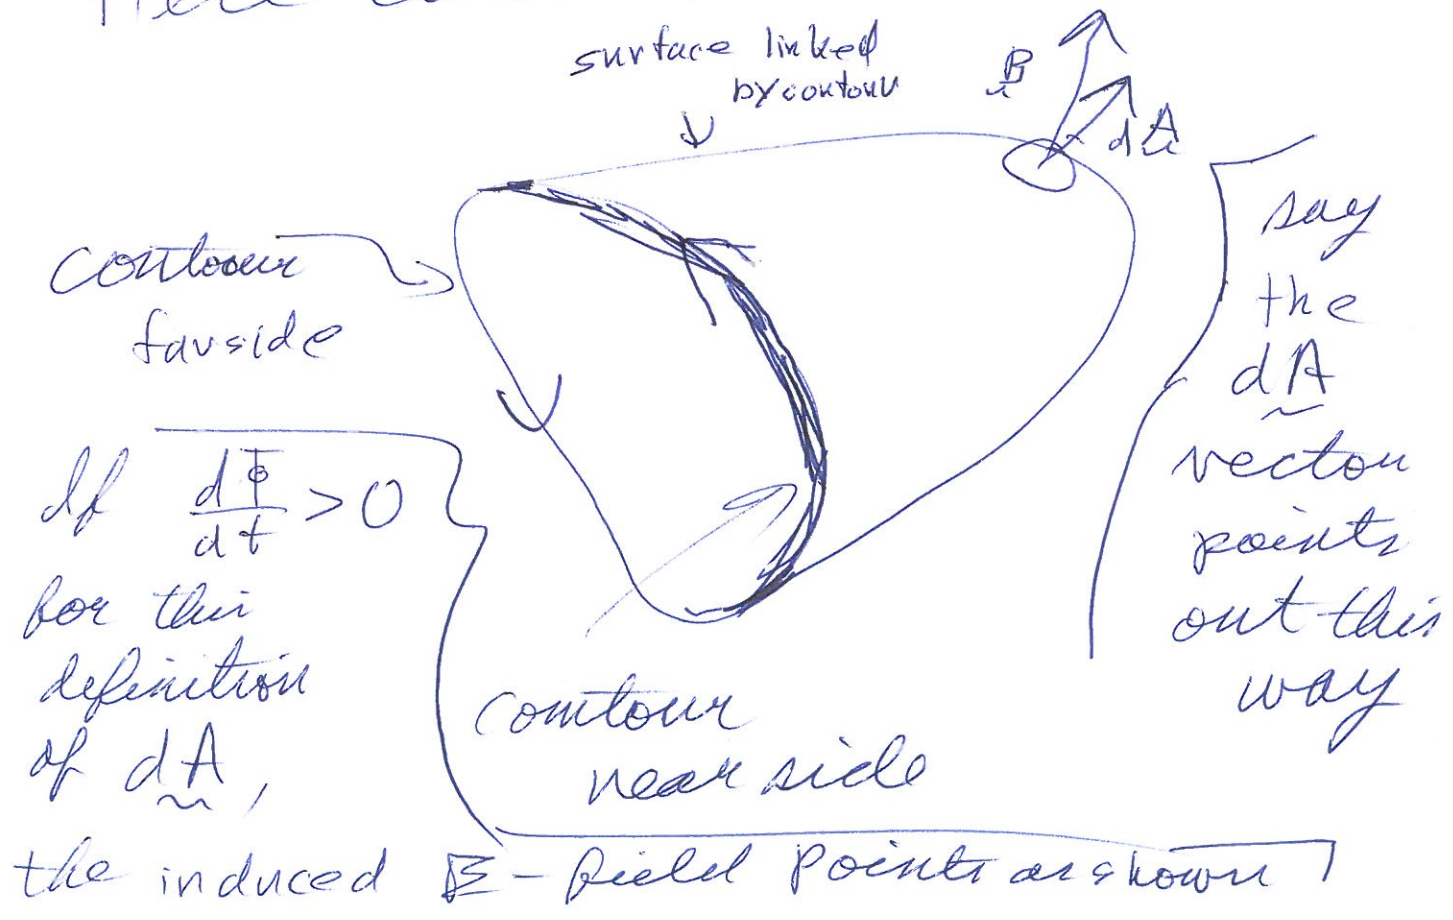 surface linked
by contour
B
dA
contour
farside
say
the
dA
vector
points
out this
way
If dΦ/dt > 0
for this
definition
of dA,
contour
near side
the induced E-field points as shown